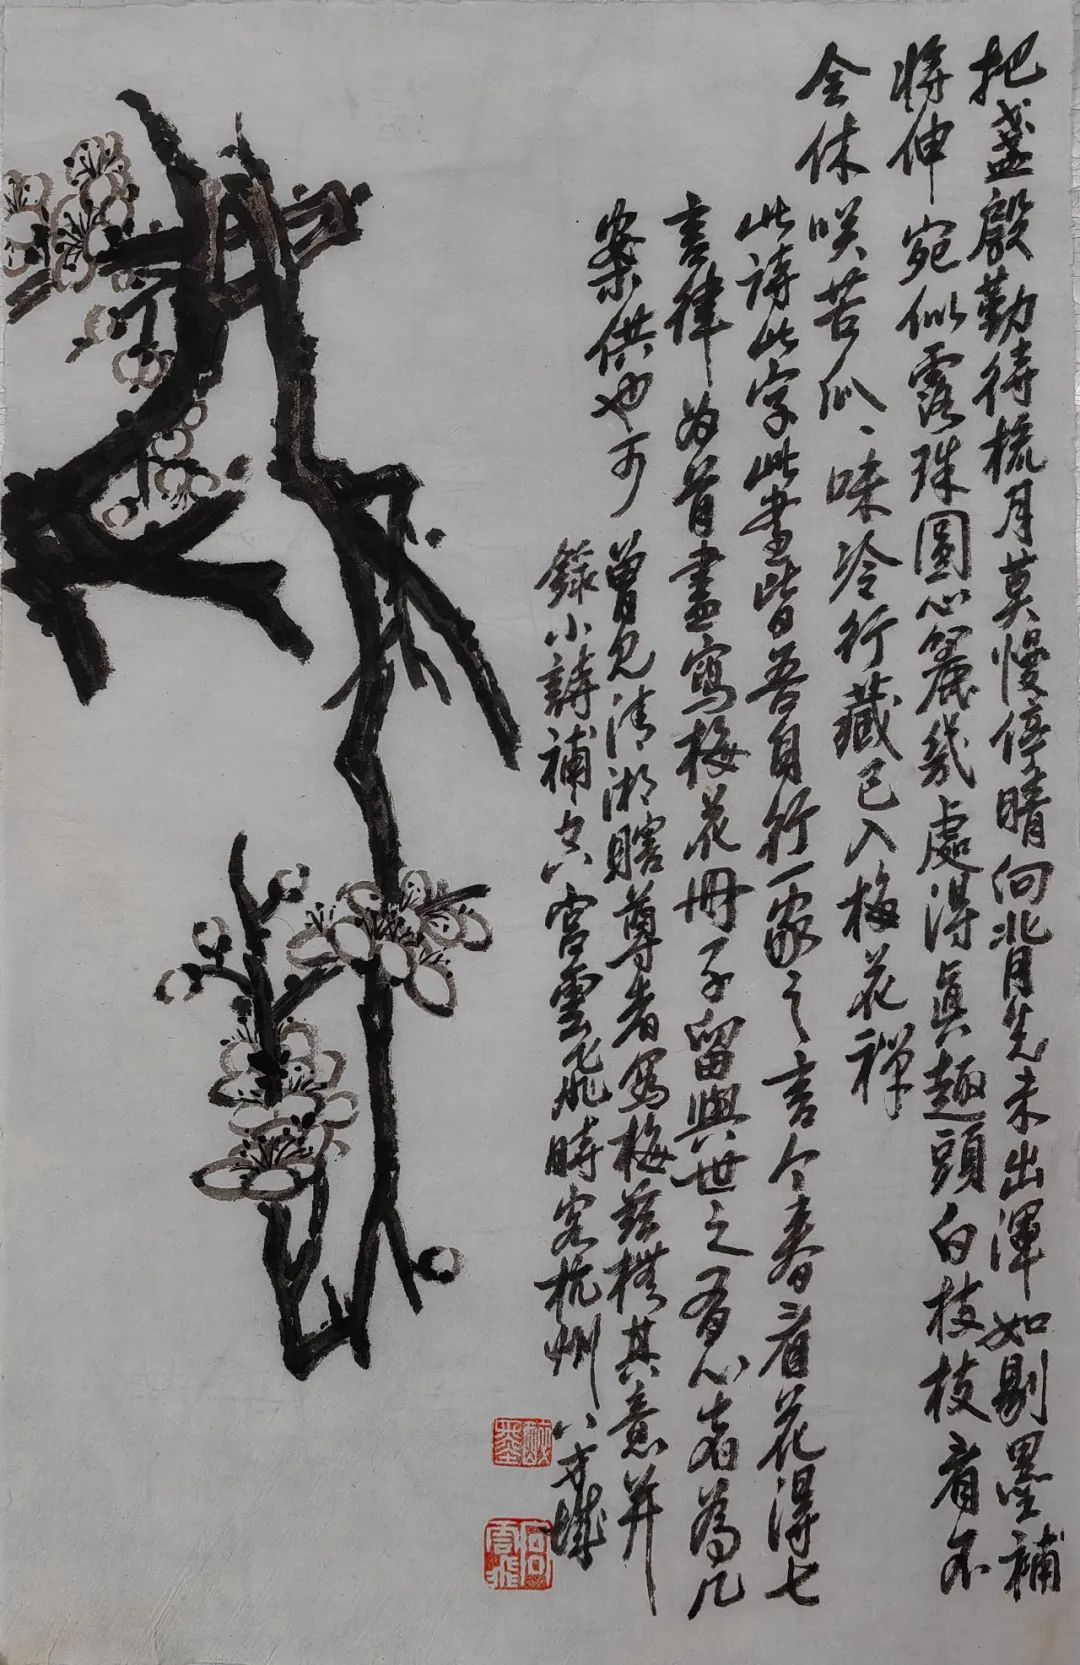 把盏殷勤待梳月莫慢停睛向背先未出渾如剔墨補
将伸宛似露珠圓心麗幾處得真趣頭白枝枝看不
全休咲苦瓜、味冷行藏已入梅花禅
此诗此字此畫皆吾自行一家之言今春看花得七
言律为首畫寫梅花冊子留與世之有心者為几
案供也可
曾見清湘瞎尊者写梅其意并
錄小詩補 宫雲飛時客杭州